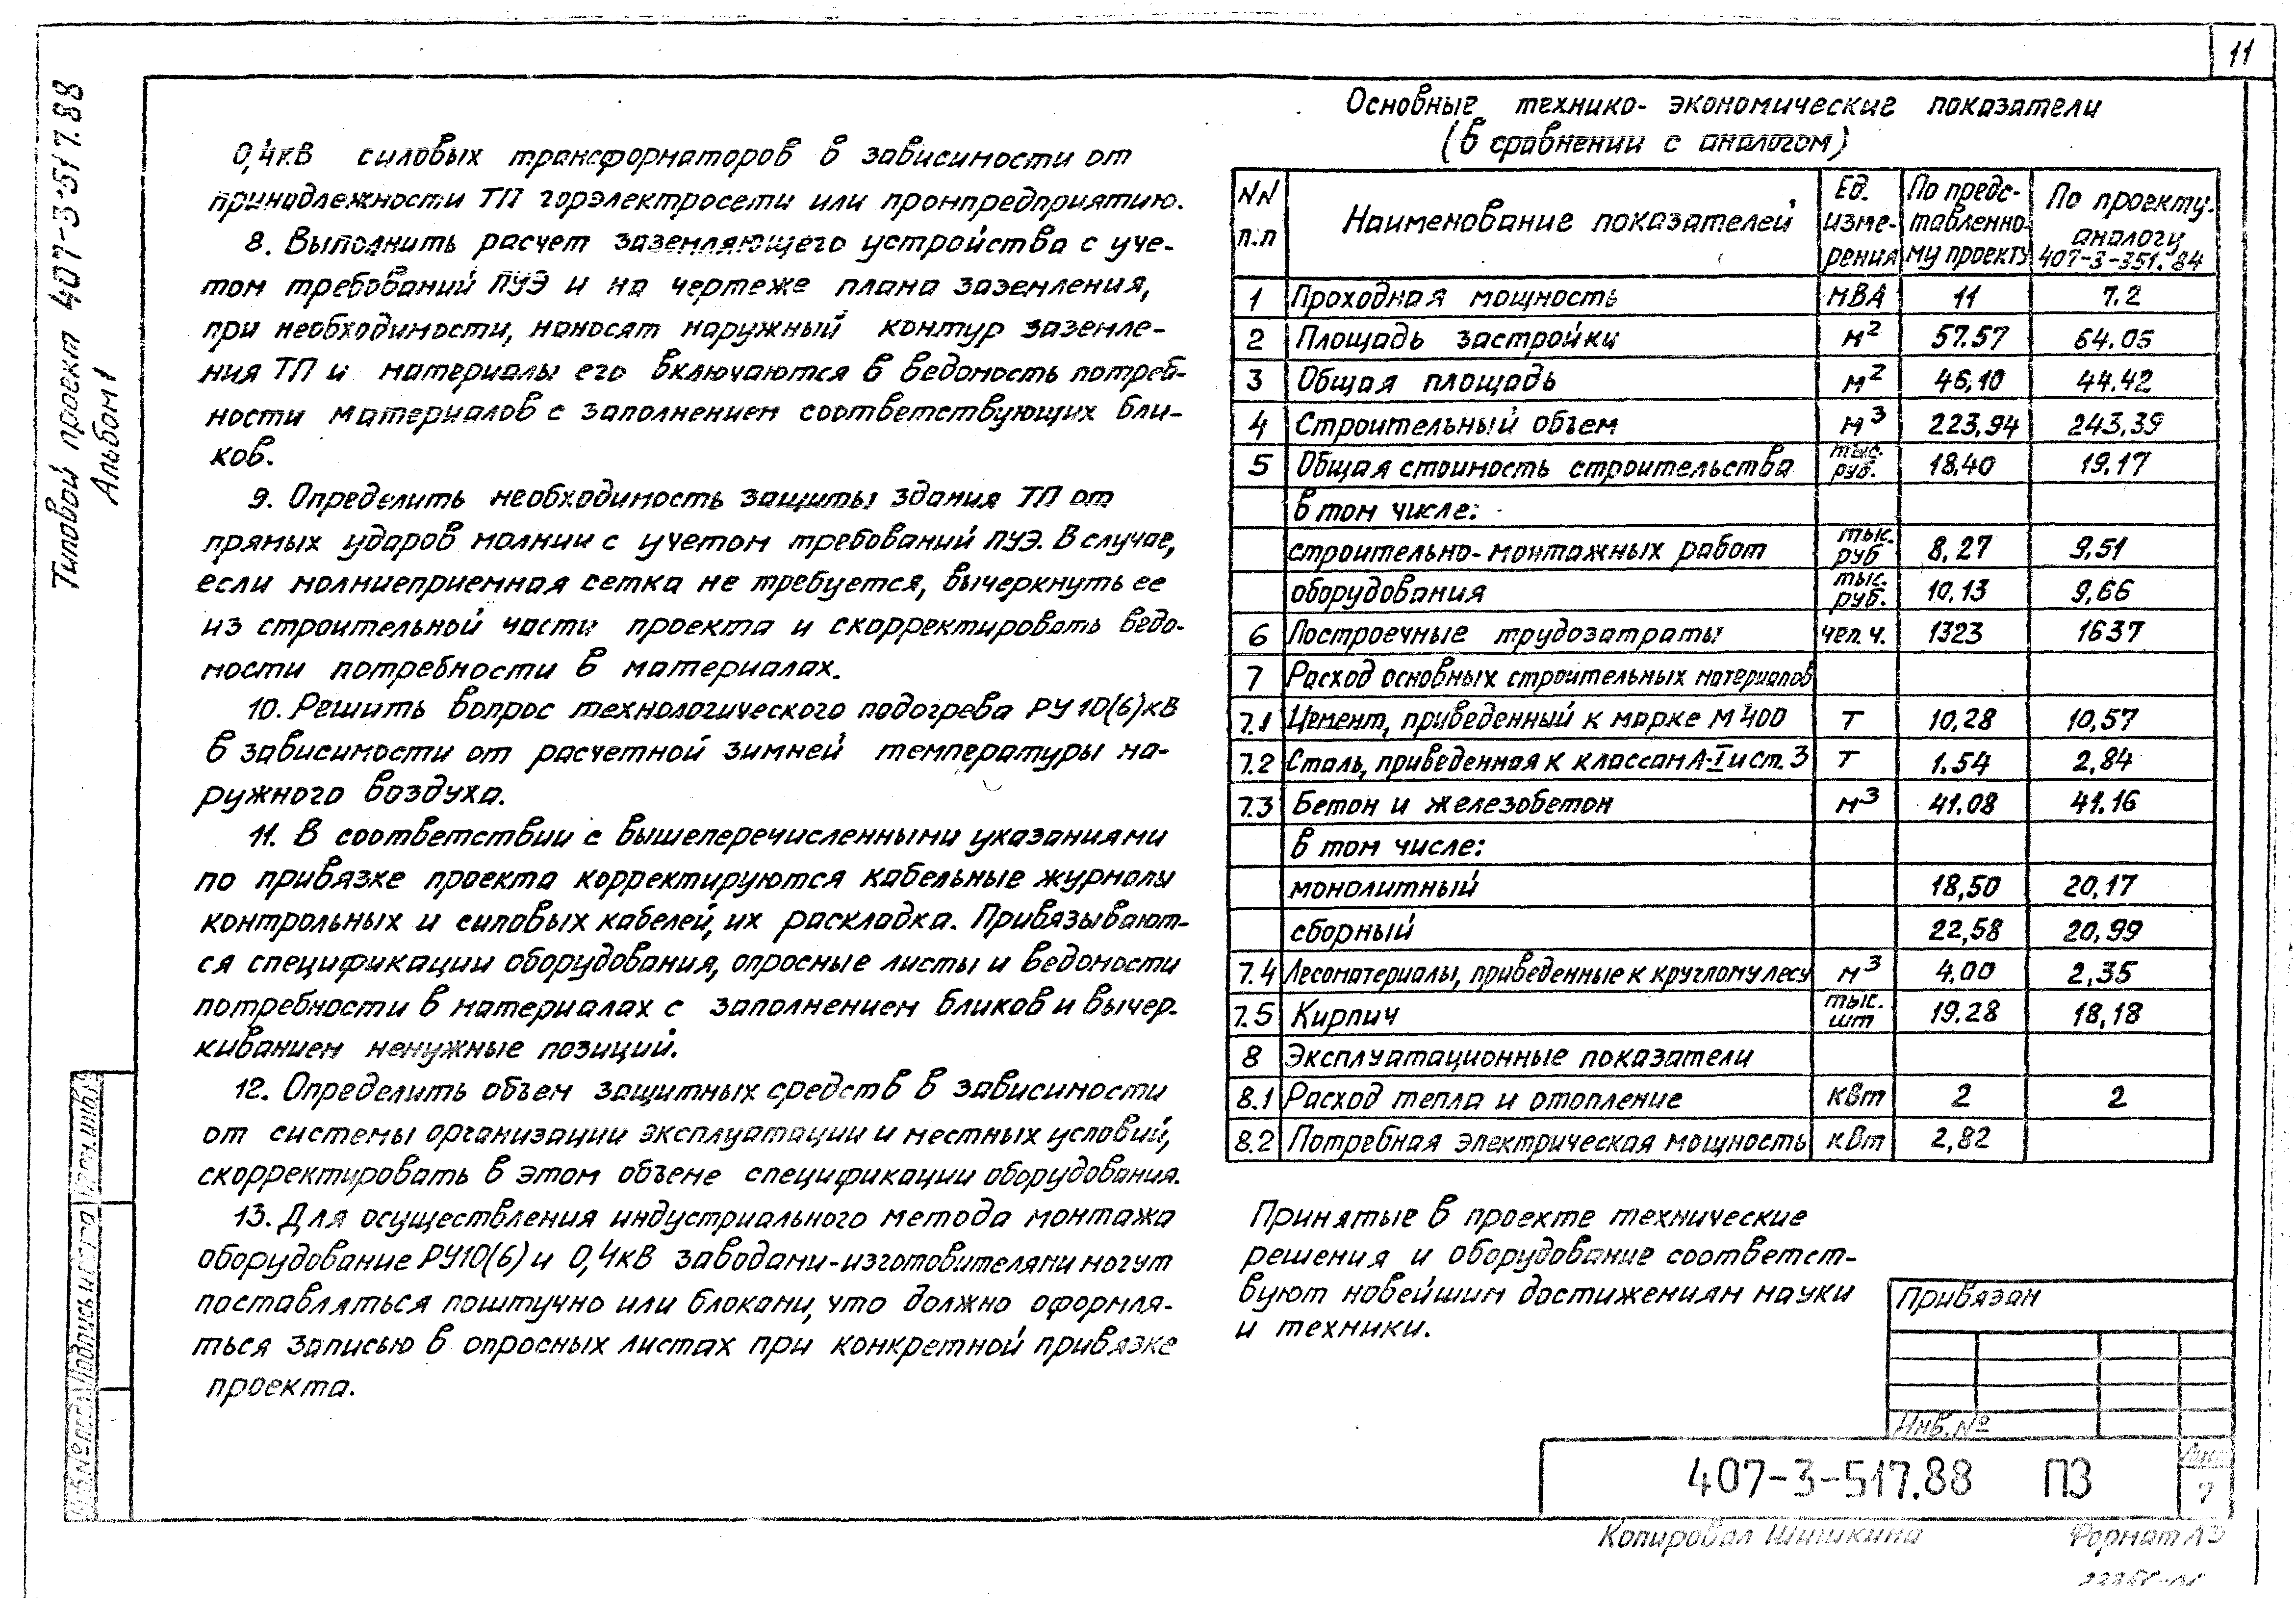 11
Типовой проект 407-3-517.88
Альбом 1
0,4кВ силовых трансформаторов в зависимости от
принадлежности ТП горэлектросети или промпредприятию.
8. Выполнить расчет заземляющего устройства с уче-
том требований ПУЭ и на чертеже плана заземления,
при необходимости, наносят наружный контур заземле-
ния ТП и материалы его включаются в ведомость потреб-
ности материалов с заполнением соответствующих бли-
ков.
9. Определить необходимость защиты здания ТП от
прямых ударов молнии с учетом требований ПУЭ. В случае,
если молниеприемная сетка не требуется, вычеркнуть ее
из строительной части проекта и скорректировать ведо-
мости потребности в материалах.
10. Решить вопрос технологического подогрева РУ 10(6)кВ
в зависимости от расчетной зимней температуры на-
ружного воздуха.
11. В соответствии с вышеперечисленными указаниями
по привязке проекта корректируются кабельные журналы
контрольных и силовых кабелей, их раскладка. Привязывают-
ся спецификации оборудования, опросные листы и ведомости
потребности в материалах с заполнением бликов и вычер-
киванием ненужные позиций.
12. Определить объем защитных средств в зависимости
от системы организации эксплуатации и местных условий,
скорректировать в этом объеме спецификации оборудования.
13. Для осуществления индустриального метода монтажа
оборудование РУ10(6) и 0,4кВ заводами-изготовителями могут
поставляться поштучно или блоками, что должно оформля-
ться записью в опросных листах при конкретной привязке
проекта.
Основные технико-экономические показатели
(в сравнении с аналогом)
NN п.п Наименование показателей Ед. изме- рения По предс- тавленно- му проекту По проекту- аналогу 407-3-351.84
1 Проходная мощность МВА 11 7.2
2 Площадь застройки м² 57.57 64.05
3 Общая площадь м² 46,10 44.42
4 Строительный объем м³ 223,94 243,39
5 Общая стоимость строительства тыс. руб. 18.40 19.17
в том числе:
строительно-монтажных работ тыс. руб 8,27 9,51
оборудования тыс. руб. 10,13 9,66
6 Построечные трудозатраты чел.ч. 1323 1637
7 Расход основных строительных материалов
7.1 Цемент, приведенный к марке М400 Т 10,28 10,57
7.2 Сталь, приведенная к классам А-I и ст. 3 Т 1.54 2,84
7.3 Бетон и железобетон м³ 41.08 41.16
в том числе:
монолитный 18,50 20,17
сборный 22,58 20,99
7.4 Лесоматериалы, приведенные к круглому лесу м³ 4,00 2,35
7.5 Кирпич тыс. шт 19.28 18,18
8 Эксплуатационные показатели
8.1 Расход тепла и отопление кВт 2 2
8.2 Потребная электрическая мощность кВт 2,82
Принятые в проекте технические
решения и оборудование соответст-
вуют новейшим достижениям науки
и техники.
Привязан
Инв.№
407-3-517.88 ПЗ
Лист
7
Инв.№ подл. Подпись и дата Взам.инв.№
Копировал Шишкина Формат А3